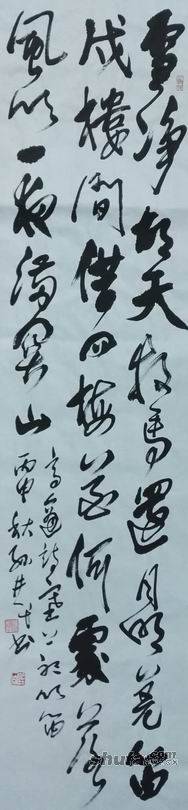 雪净胡天牧馬還月明羌笛
戍樓間借问梅花何處落
風吹一夜滿関山
高適詩塞上听吹笛
丙申秋